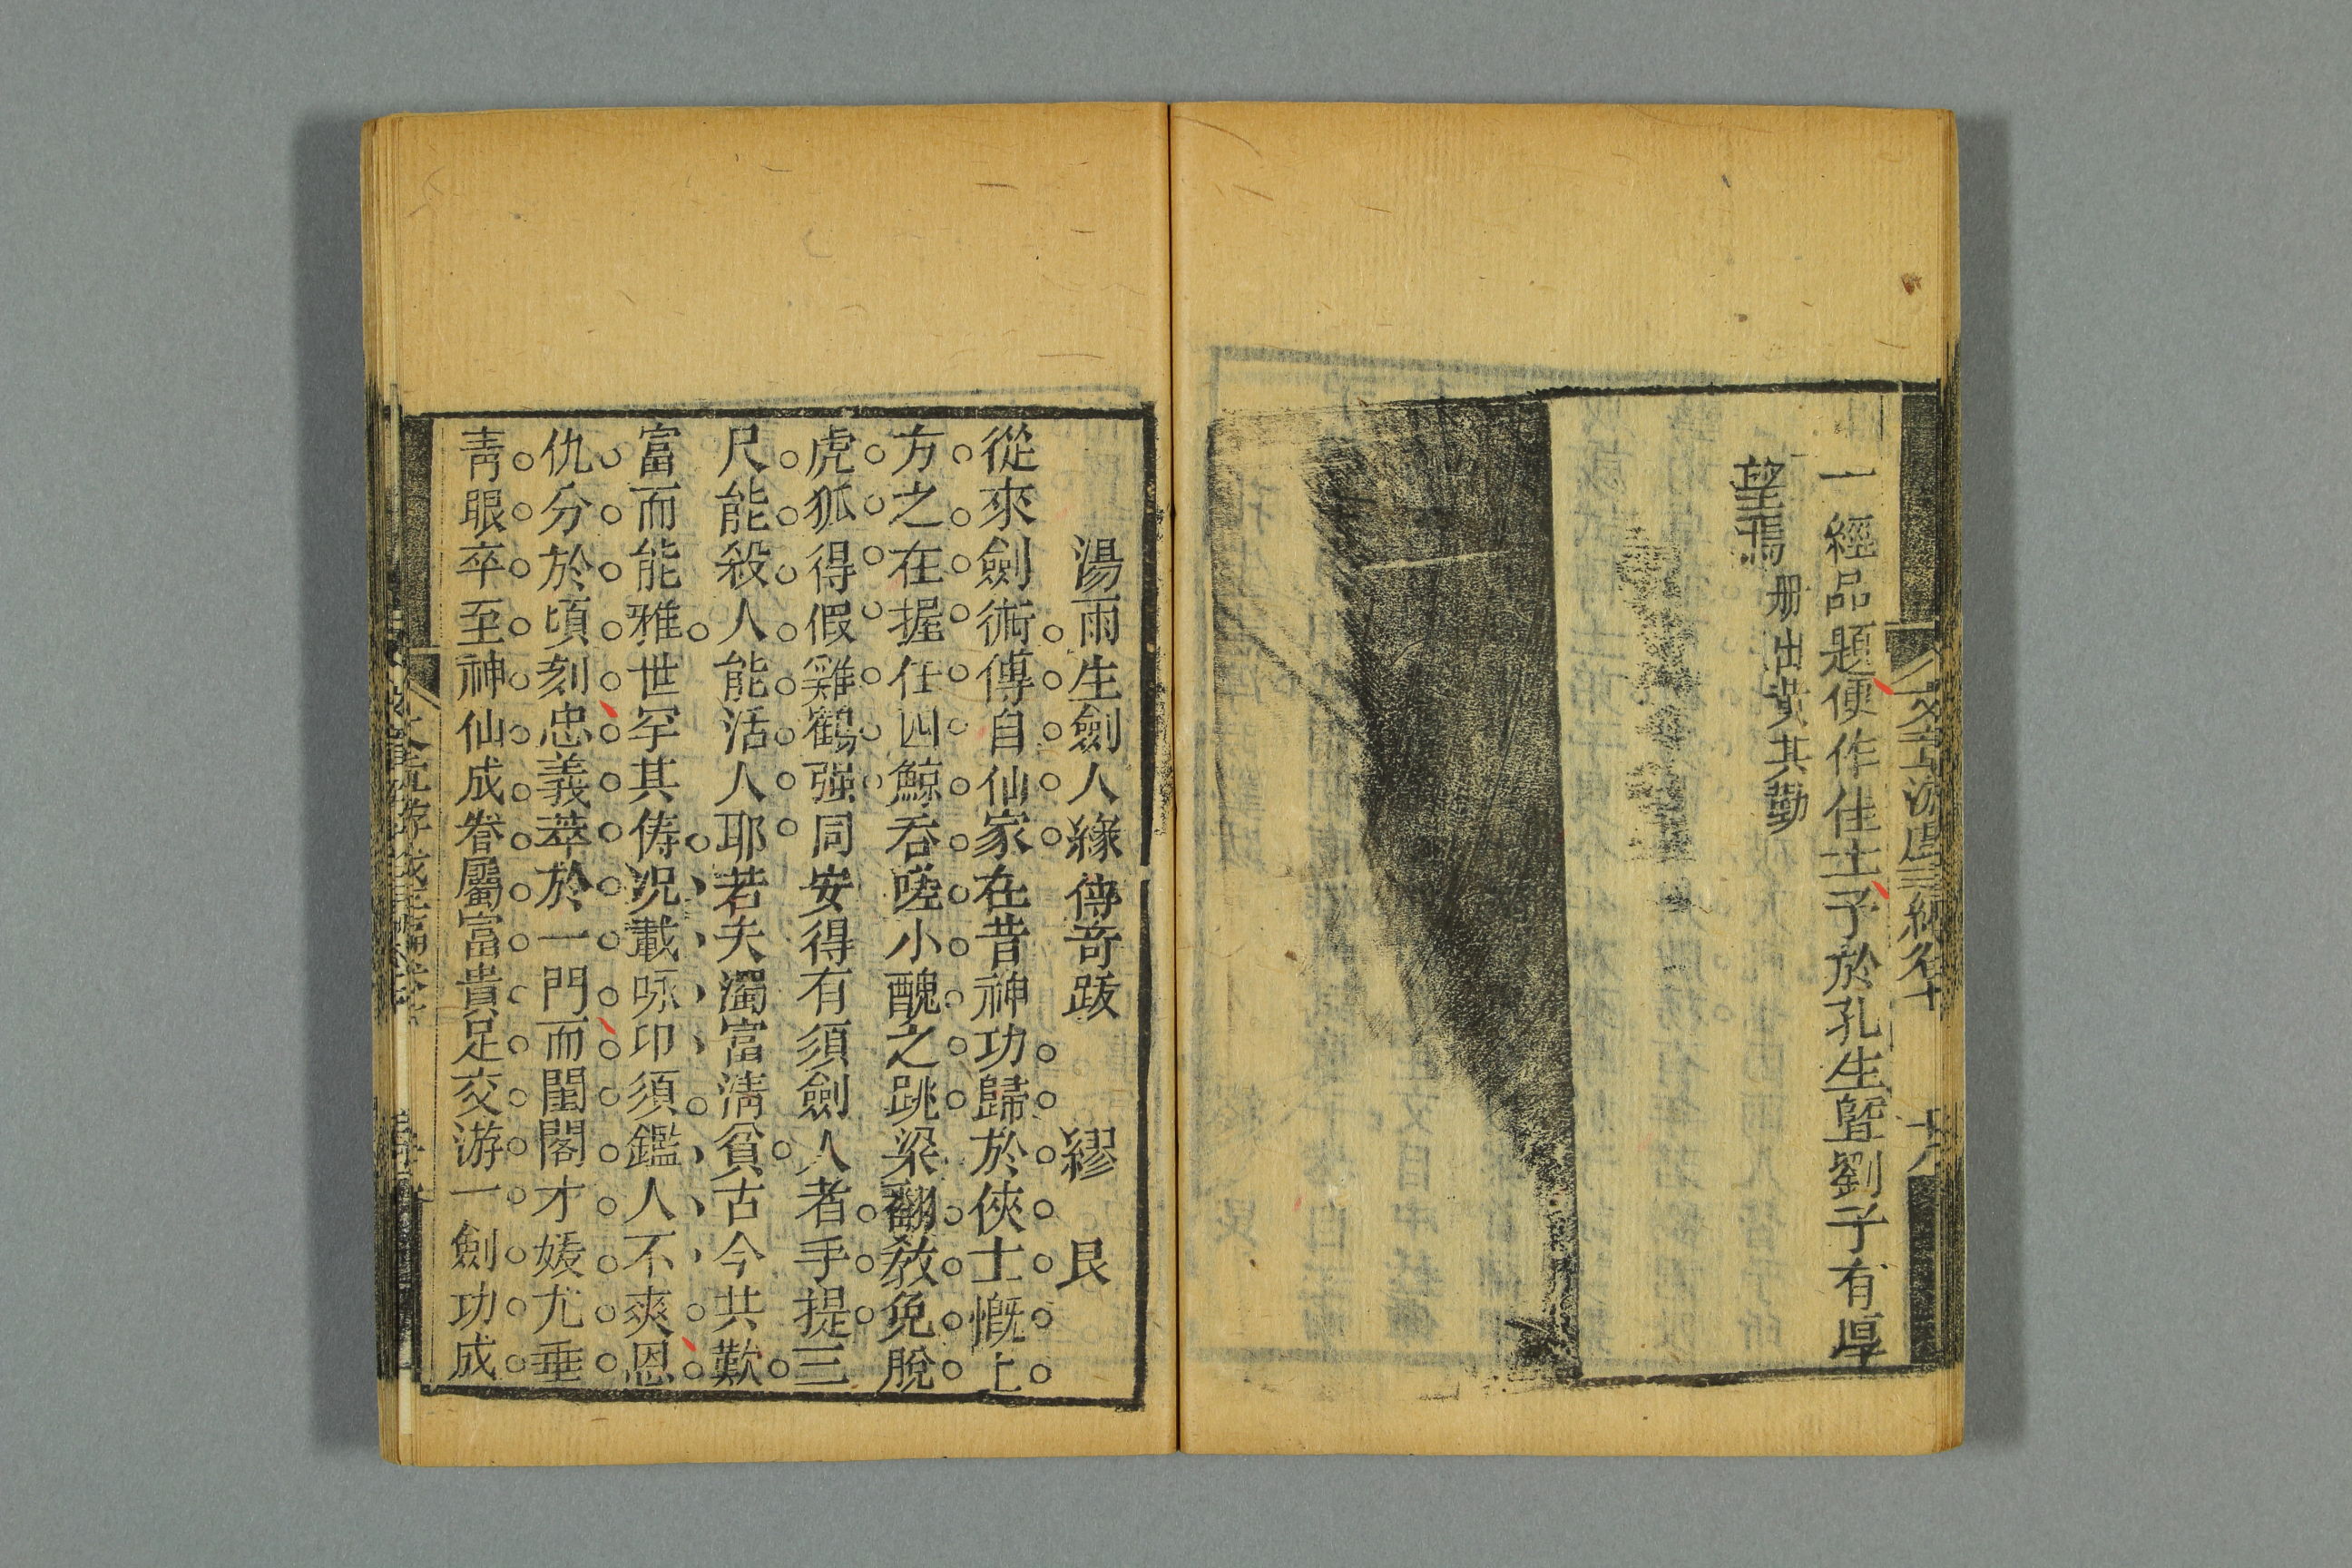 一經品題便作佳士予於孔生曁劉子有厚
望焉
册出黄其勤
湯雨生劍人緣傳奇跋　繆艮
從來劍術傳自仙家在昔神功歸於俠士慨上
方之在握任四鯨吞嗟小醜之跳梁翻教免脫
虎狐得假雞鶴强同安得有須劍人者手提三
尺能殺人能活人耶若夫濁富淸貧古今共歎
富而能雅世罕其俦况載咏卬須鑑人不爽恩
仇分於頃刻忠義萃於一門而閨閣才媛尤垂
靑眼卒至神仙成眷屬富貴足交游一劍功成